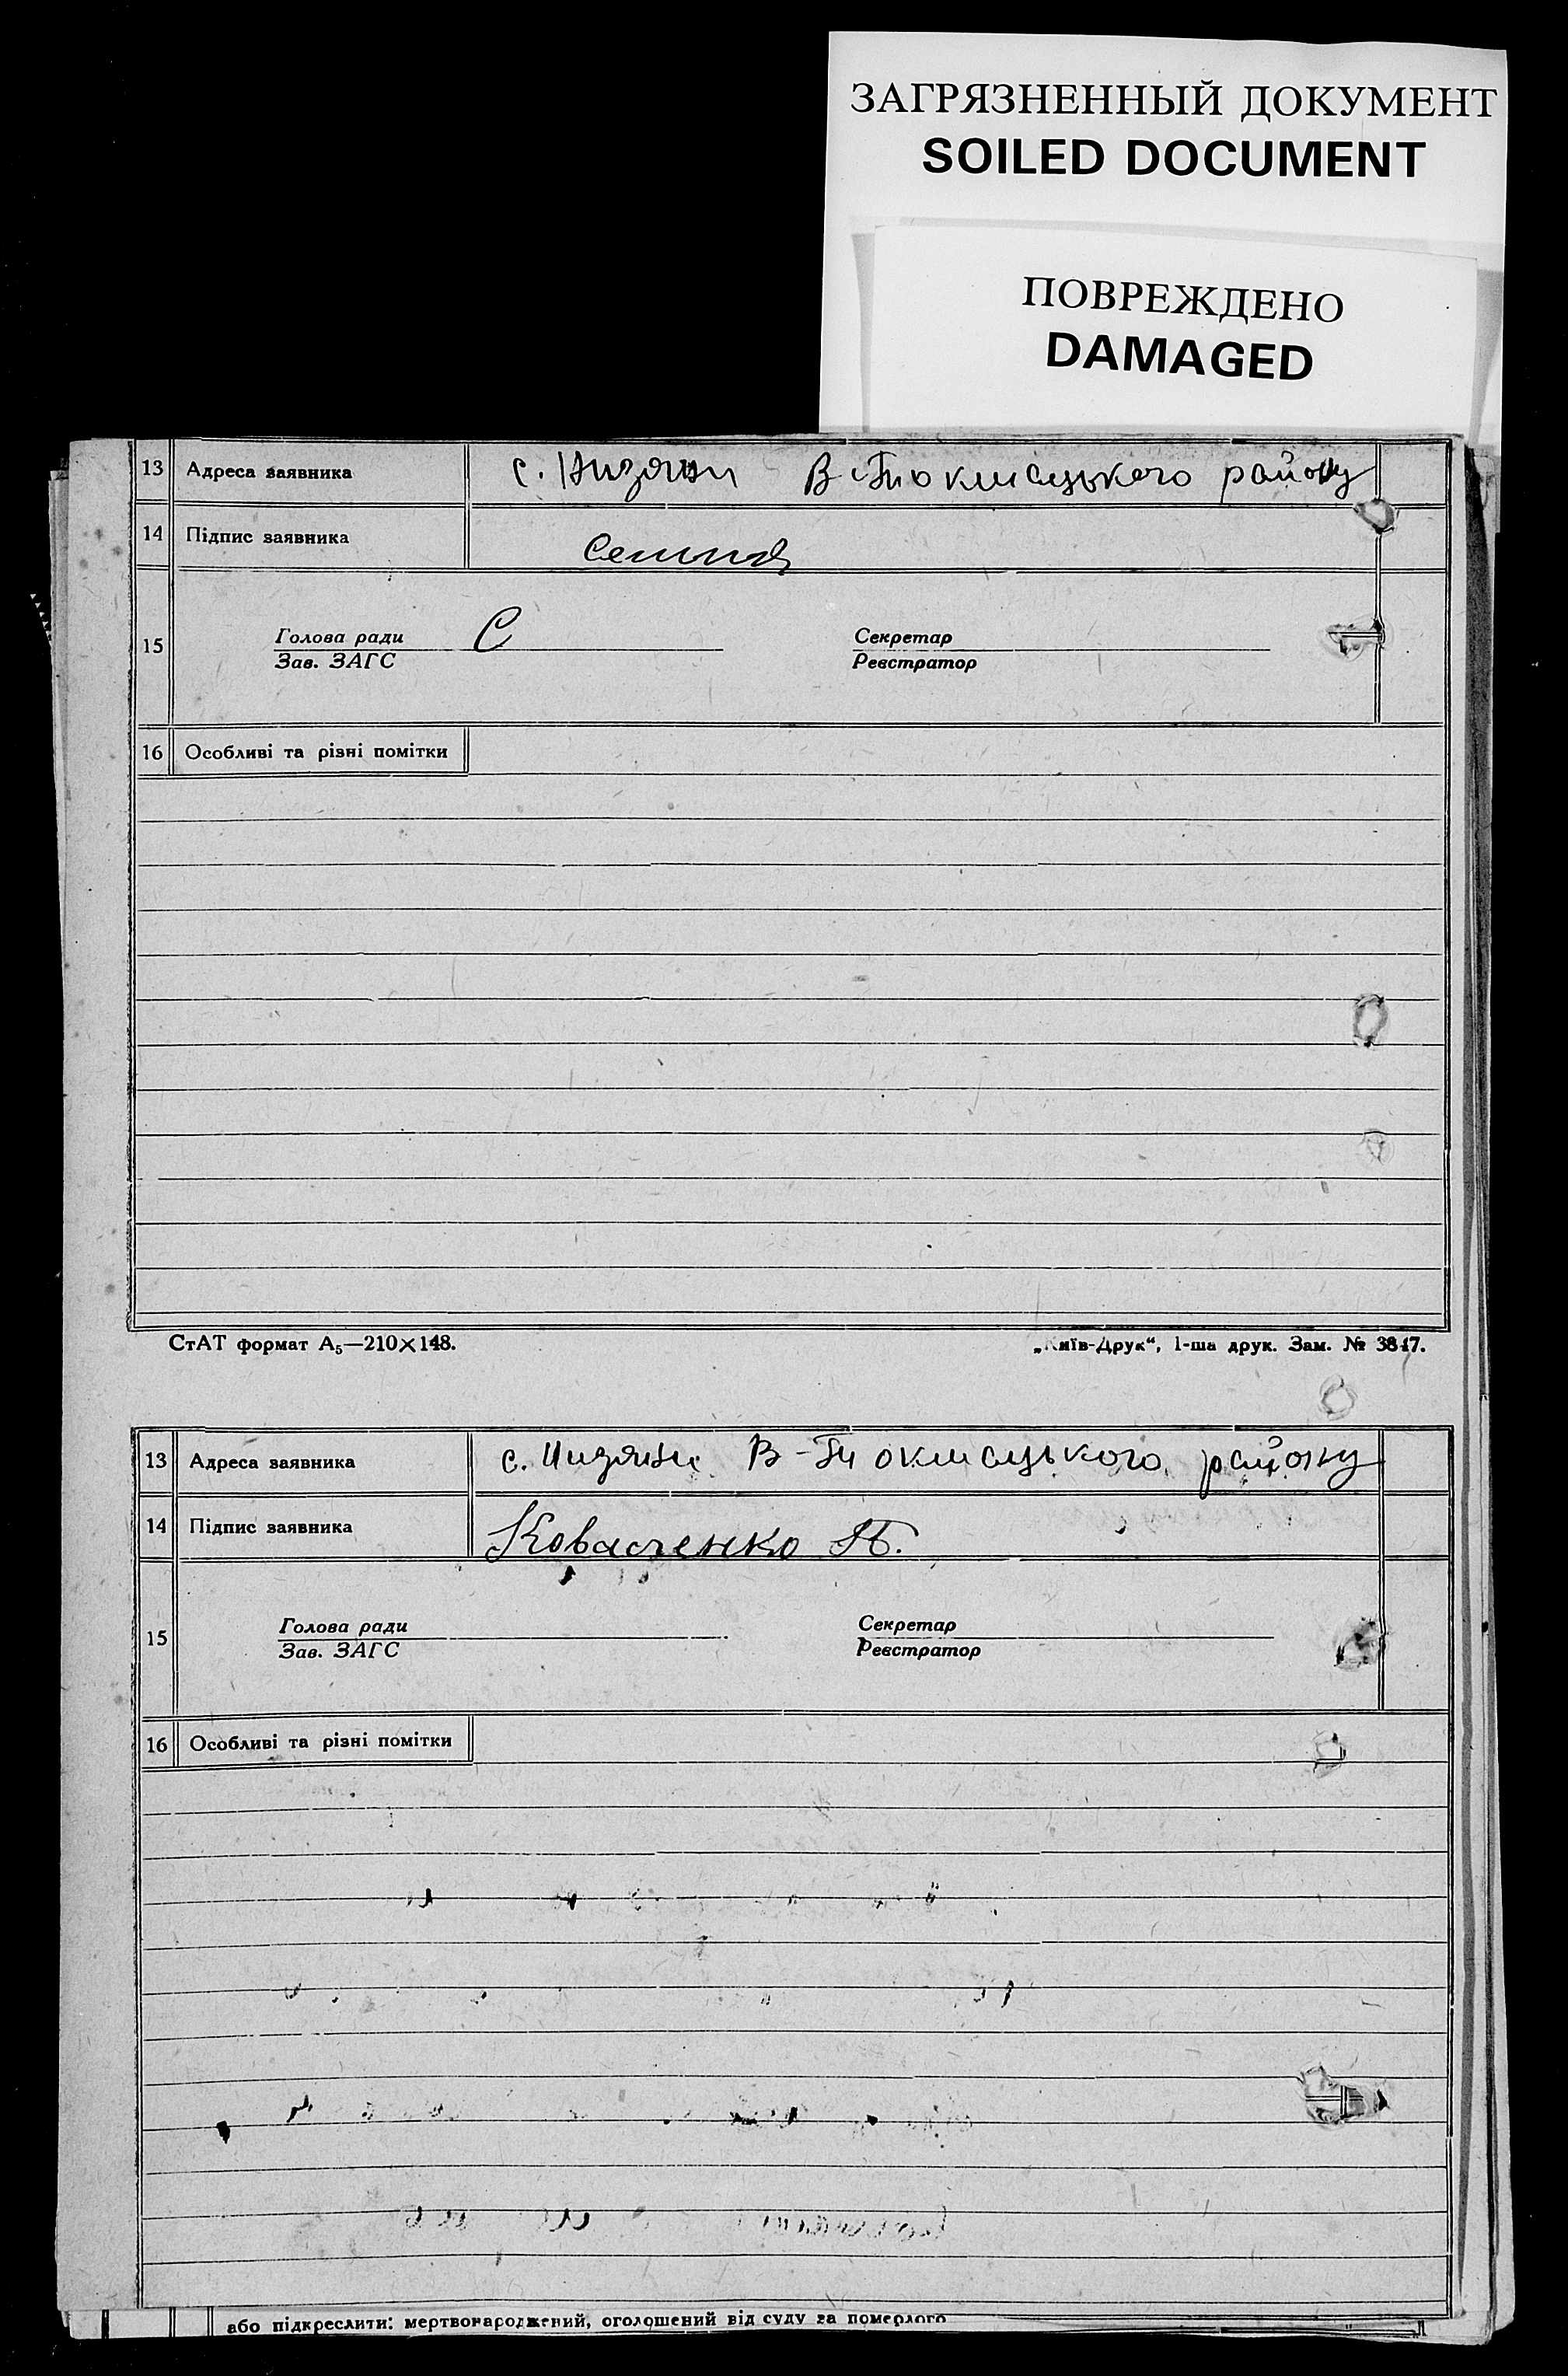 ЗАГРЯЗНЕННЫЙ ДОКУМЕНТ
SOILED DOCUMENT
ПОВРЕЖДЕНО
DAMAGED
13 Адреса заявника с. Низяни В-Токмацького району
14 Підпис заявника
15 Голова ради С Секретар
Зав. ЗАГС Реєстратор
16 Особливі та різні помітки
СтАТ формат А₅—210×148. „Київ-Друк“, 1-ша друк. Зам. № 3847.
13 Адреса заявника с. Низяни В-Токмацького району
14 Підпис заявника Коваленко П.
15 Голова ради Секретар
Зав. ЗАГС Реєстратор
16 Особливі та різні помітки
або підкреслити: мертвонароджений, оголошений від суду за померлого